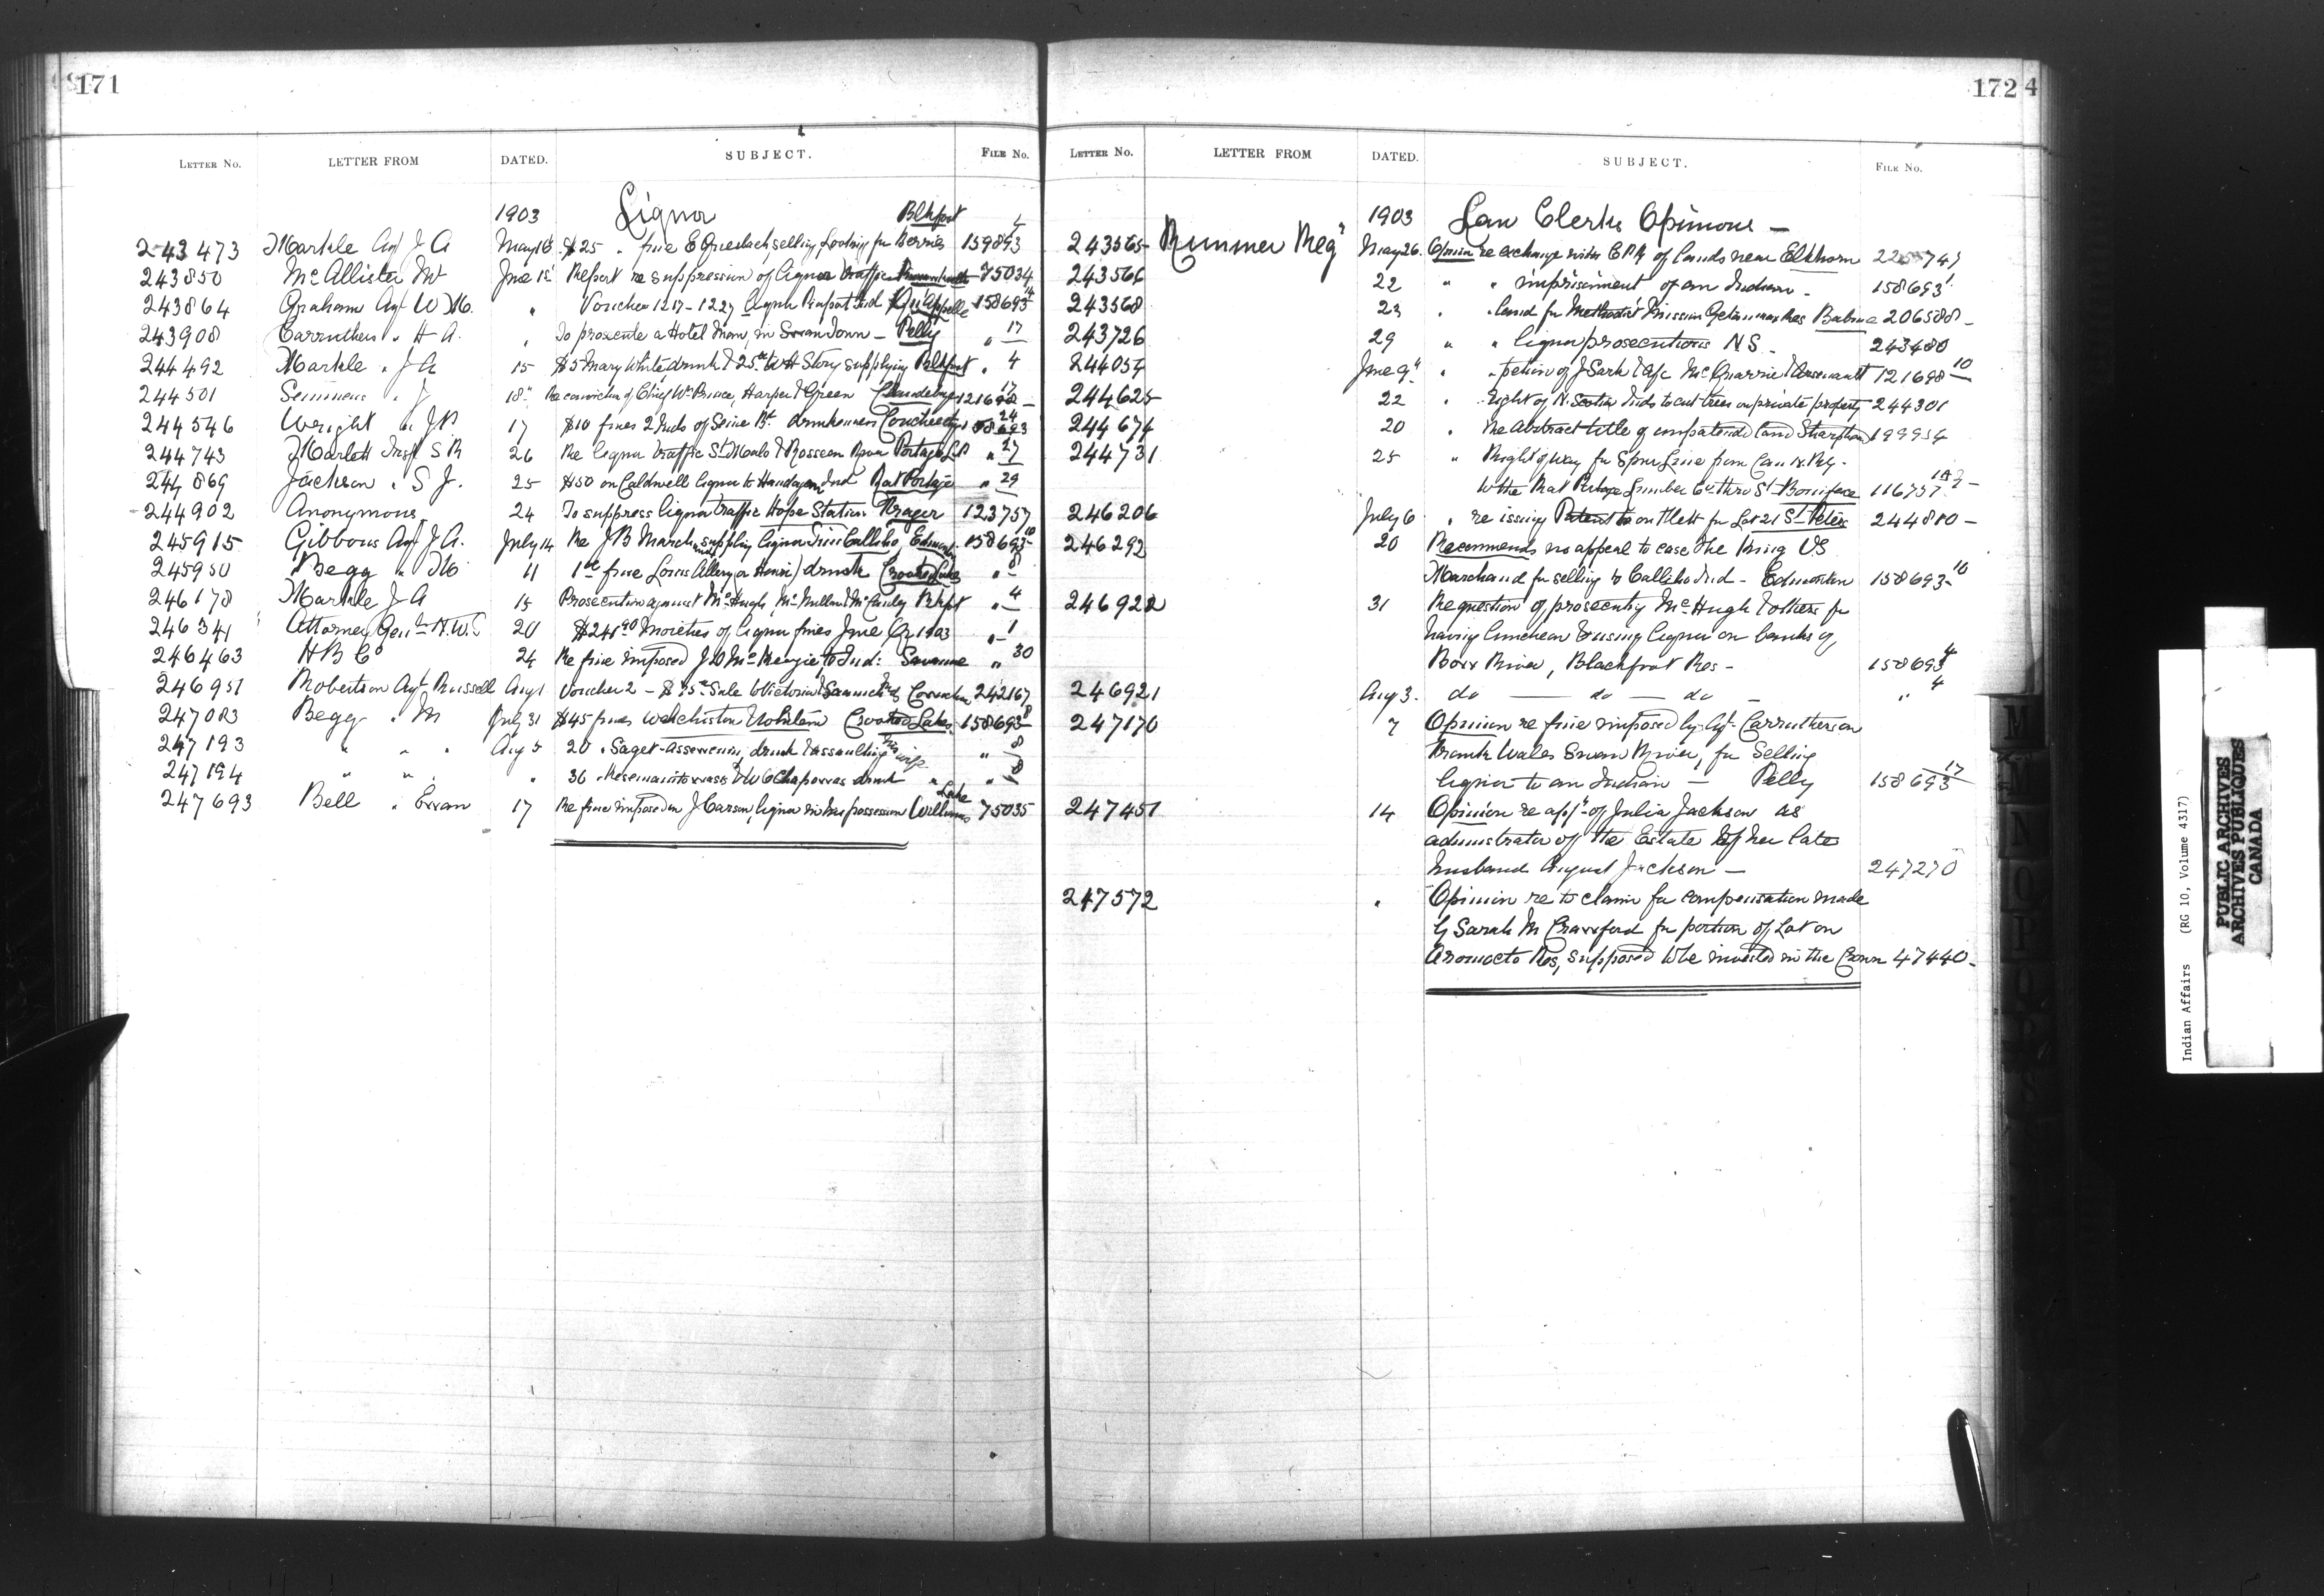 171
LETTER No. LETTER FROM DATED. SUBJECT. FILE No.
1903 Liquor Blkfoot
243473 Markle Agt J A May 18 $25 . fine E selling, Lodging for Berries 159893 4
243850 McAllister M June 1st Report re suppression of liquor traffic 75034
243864 Graham Agt W M. " Voucher 1217-1227 liquor Ind Qu'Appelle 158693
243908 Carruthers " H A. " To prosecute a Hotel man, in Swan Town - Pelly " 17
244492 Markle " J A 15 $5 Mary White drunk & 25.00 W H Story supplying Blkfoot " 4
244501 Semmens " J 18" Re conviction of Chief Wm Prince, Harper & Green Clandeboye 121698 17
244546 Wright " J P 17 $10 fines 2 Inds of Seine Rt. drunkenness Coucheeching 158693 24
244743 Marlatt Insp S R 26 Re liquor traffic St Malo & Rosseau River Portage L.P. " 27
244869 Jackson " S J. 25 $50 on Caldwell liquor to Ind Rat Portage " 29
244902 Anonymous 24 To suppress liquor traffic Hope Station Fraser 123757
245915 Gibbons Agt J A. July 14 Re J B Marchand supplying liquor Callihoo, Edmonton 158693 10
245950 Begg " M 11 1.00 fine Louis Allery (or Henri) drunk Crooked Lake " 8
246178 Markle J A 15 Prosecution against McHugh, McMullen & McCauley Blkfoot " 4
246341 Attorney Genl N.W.T 20 $241.90 Moieties of liquor fines June Qr 1903 " 1
246463 H B Co 24 Re fine imposed J D McKenzie to Ind: Savanne " 30
246951 Robertson Agt Russell Aug 1 Voucher 2 - $ Sale to Victoria & Samuel Cowichan 242167
247083 Begg " M July 31 $45 fines Crooked Lakes 158693 8
247193 " " " Aug 5 20 " drunk & assaulting his wife " 8
247194 " " " " 36 & W C drunk " " 8
247693 Bell " Ewan 17 Re fine imposed on J Carson, liquor in his possession Williams Lake 75035
172
4
LETTER No. LETTER FROM DATED. SUBJECT. FILE No.
1903 Law Clerks Opinions -
243565 Rimmer Regd May 26. Opinion re exchange with C P R of lands near Elkhorn 225741
243566 22 " " imprisonment of an Indian - 158693 1
243568 23 " " land for Methodist Mission Getanmax Res Babine 206588 -
243726 29 " " liquor prosecutions N S - 243480
244054 June 9" " " petition of J Sark & Afc McQuarrie & Arsenault 121698 10
244625 22 " right of N. Scotia Inds to cut trees on private property 244301
244674 20 " Re Abstract title of unpatented land Sharphead 199954
244731 25 " Right of way for Spur Line from Can N. Rly.
to the Rat Portage Lumber Co. thro St Boniface 116757
246206 July 6 " re issuing Patent to on Tlett for Lot 21 St Peters 244810 -
246292 20 Recommends no appeal to case the King VS
Marchand for selling to Callihoo Ind - Edmonton 158693 10
246922 31 Re question of prosecuting McHugh & others for
having luncheon & using liquor on banks of
Bow River, Blackfoot Res - 158693 4
246921 Aug 3. do - do - do - " 4
247170 7 Opinion re fine imposed by Agt Carruthers on
Frank Wales Swan River, for Selling
liquor to an Indian - Pelly 158693 17
247451 14 Opinion re appt of Julia Jackson as
administrator of the Estate of her late
husband August Jackson - 247270
247572 " Opinion re to claim for compensation made
by Sarah M Crawford for portion of Lot on
Aromocto Res, supposed to be invested in the Crown 47440 -
M
N
O
P
Indian Affairs (RG 10, Volume 4317)
PUBLIC ARCHIVES
ARCHIVES PUBLIQUES
CANADA